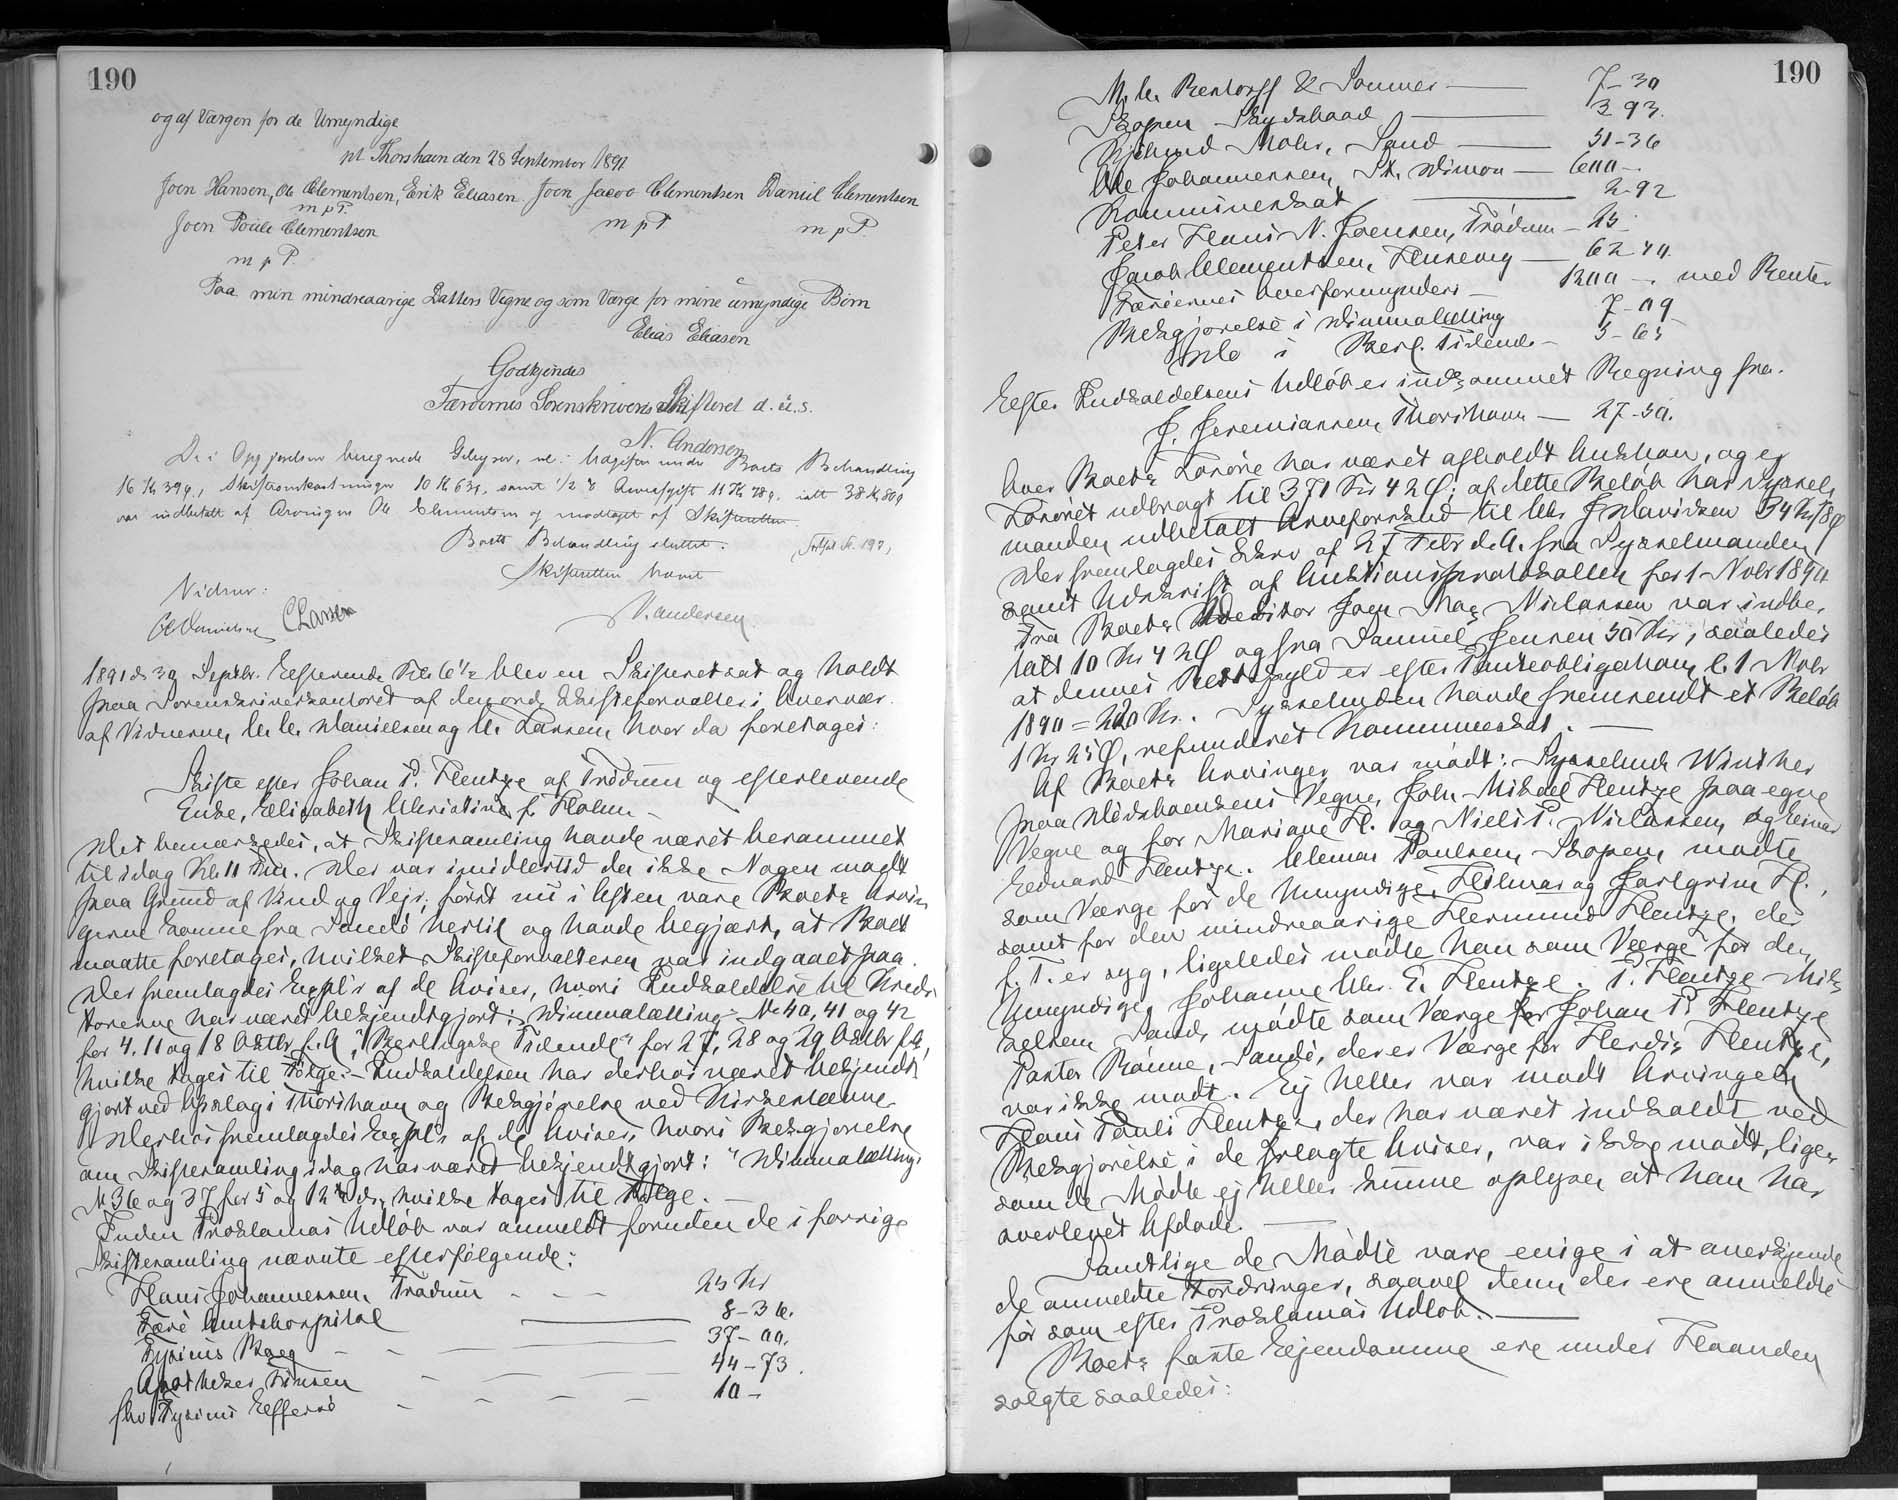 190
og af Værgen for de Umyndige
pt Thorshavn den 28 September 1891
Joen Hansen, Ole Clementsen, Erik Eliasen Joen Jacob Clementsen Daniel Clementsen
m p P. m p P m p P.
Joen Poule Clementsen
m p P.
Paa min mindreaarige Datters Vegne og som Værge for mine umyndige Børn
Elias Eliasen
Godkjendes
Færøernes Sorenskriveris Skifteret d. u. s.
N. Andersen
De i Opgjørelsen beregnede Gebyrer, nl. Udgifter under Boets Behandling
16 Kr 39 ø, Skifteomkostninger 10 Kr 63 ø, samt 1/2 % Arveafgift 11 Kr 78 ø, ialt 38 Kr 80 ø
var indbetalt af Arvingen Ole Clementsen og modtaget af Skifteretten.
Boets Behandling sluttet.
Skifteretten hævet
N. Andersen
Vidner:
CC Danielsen CLarsen
1891 d. 30 Septbr. Eftermd. Kl. 6 1/2 blev en Skifteret sat og holdt
paa Sorenskriverkontoret af den ord. Skifteforvalter i Overvær.
af Vidnerne C. C. Danielsen og C. Larsen, hvor da foretoges:
Skifte efter Johan P. Hentze af Trödum og efterlevende
Enke, Elisabeth Christine f. Holm.
Det bemærkedes, at Skiftesamling havde været berammet
til idag Kl. 11 Fm. Der var imidlertid da ikke Nogen mødt
paa Grund af Vind og Vejr, først nu i Aften vare Boets Arvin
gerne komne fra Sandö hertil og havde begjært, at Boet
maatte foretages, hvilket Skifteforvalteren var indgaaet paa.
Der fremlagdes Expl's af de Aviser, hvori Indkaldelse til Kredi
torerne har været bekjendtgjort: Dimmalætting No 40, 41 og 42
for 4. 11 og 18 Oktbr f. A, "Berlingske Tidende" for 27, 28 og 29 Oktbr f. A,
hvilke tages til Følge. Indkaldelsen har derhos været bekjendt
gjort ved Opslag i Thorshavn og Bekgjørelse ved Kirkestævne
Derhos fremlagdes Expl's af de Aviser, hvori Bekgjørelse
om Skiftesamling idag har været bekjendtgjort: "Dimmalætting"
No 36 og 37 for 5 og 12 ds, hvilke tages til Følge.
Inden Proklamas Udløb var anmeldt foruden de i forrige
Skiftesamling nævnte efterfølgende:
Hans Johannessen, Trödum 25 Kr
Færø Amtshospital 8-36.
Fysicus Boeg 37-00.
Apotheker Finsen 44-73.
fhv Fysicus Effersö 10-
190
M. C. Rentorff & Sønner 7-30
Skopen Skydshaad 393.
Kjhvnd Mohr, Sand 51-36
Ole Johannessen, St. Dimon 600-
Kommuneskat 2-92
Peter Hans N. Joensen, Trödum 25-
Jacob Clementsen, Husevig 62-40.
Færöernes Overformynderi 1200- med Renter
Bekgjørelse i Dimmalætting 7-09
Do i Berl. Tidende 5-65
Efter Indkaldelsens Udløb er indkommet Regning fra
J. Jeremiassen, Thorshavn 27-50.
Over Boets Løsöre har været afholdt Auktion, og er
Løsöret udbragt til 371 Kr 42 Ø; af dette Beløb har Syssel
manden udbetalt Arveforskud til Chr J Davidsen 54 Kr 18 Ø
Der fremlagdes Skre af 27 Febr d. A. fra Sysselmanden
samt Udskrift af Auktionsprotokollen for 1 Novbr 1890
Fra Boets Debitor Joen Mac Niclassen var indbe,
talt 10 Kr 42 Ø og fra Samuel Jensen 50 Kr, saaledes
at dennes Restskyld er efter Panteobligation l. 1 Novbr
1890 = 220 Kr. Sysselmden havde fremsendt et Beløb
1 Kr 25 Ø, refunderet Kommuneskat.
Af Boets Arvinger var mødt: Sysselmd Winther
paa Dødsboenkens Vegne, Joh. Mikael Hentze paa egne
Vegne og for Mariane H. og Niels P. Niclassen, og Einar
Edvard Hentze. Clemen Poulsen, Skopen, mødte
som Værge for de Umyndige, Hilmar og Jarlgrim H.,
samt for den mindreaarige Hermund Hentze, der
f. T. er syg, ligeledes mødte han som Værge for den
Umyndige, Johanne Chr. E. Hentze. P. Hentze Mik
kelsen, Sand, mødte som Værge for Johan P. Hentze
Pastor Rönne, Sandö, der er Værge for Herdis Hentze,
var ikke mødt. Ej heller var mødt Arvingen
Hans Pauli Hentze, der har været indkaldt ved
Bekgjørelse i de frlagte Aviser, var ikke mødt, lige
som de Mødte ej heller kunne oplyse, at han har
overlevet Afdøde.
Samtlige de Mødte vare enige i at anerkjende
de anmeldte Fordringer, saavel dem, der ere anmeldte
før som efter Proklamas Udløb.
Boets faste Ejendomme ere under Haanden
solgte saaledes: